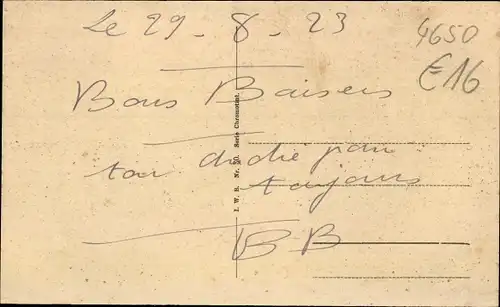 Le 29 - 8 - 23
4650
€16
Bons Baisers
ton dédé pour
toujours
BB
I. W. B. Nr. Serie Chromotint.